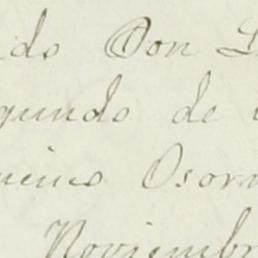 do Don
gundo de
Osorn
Noviembr